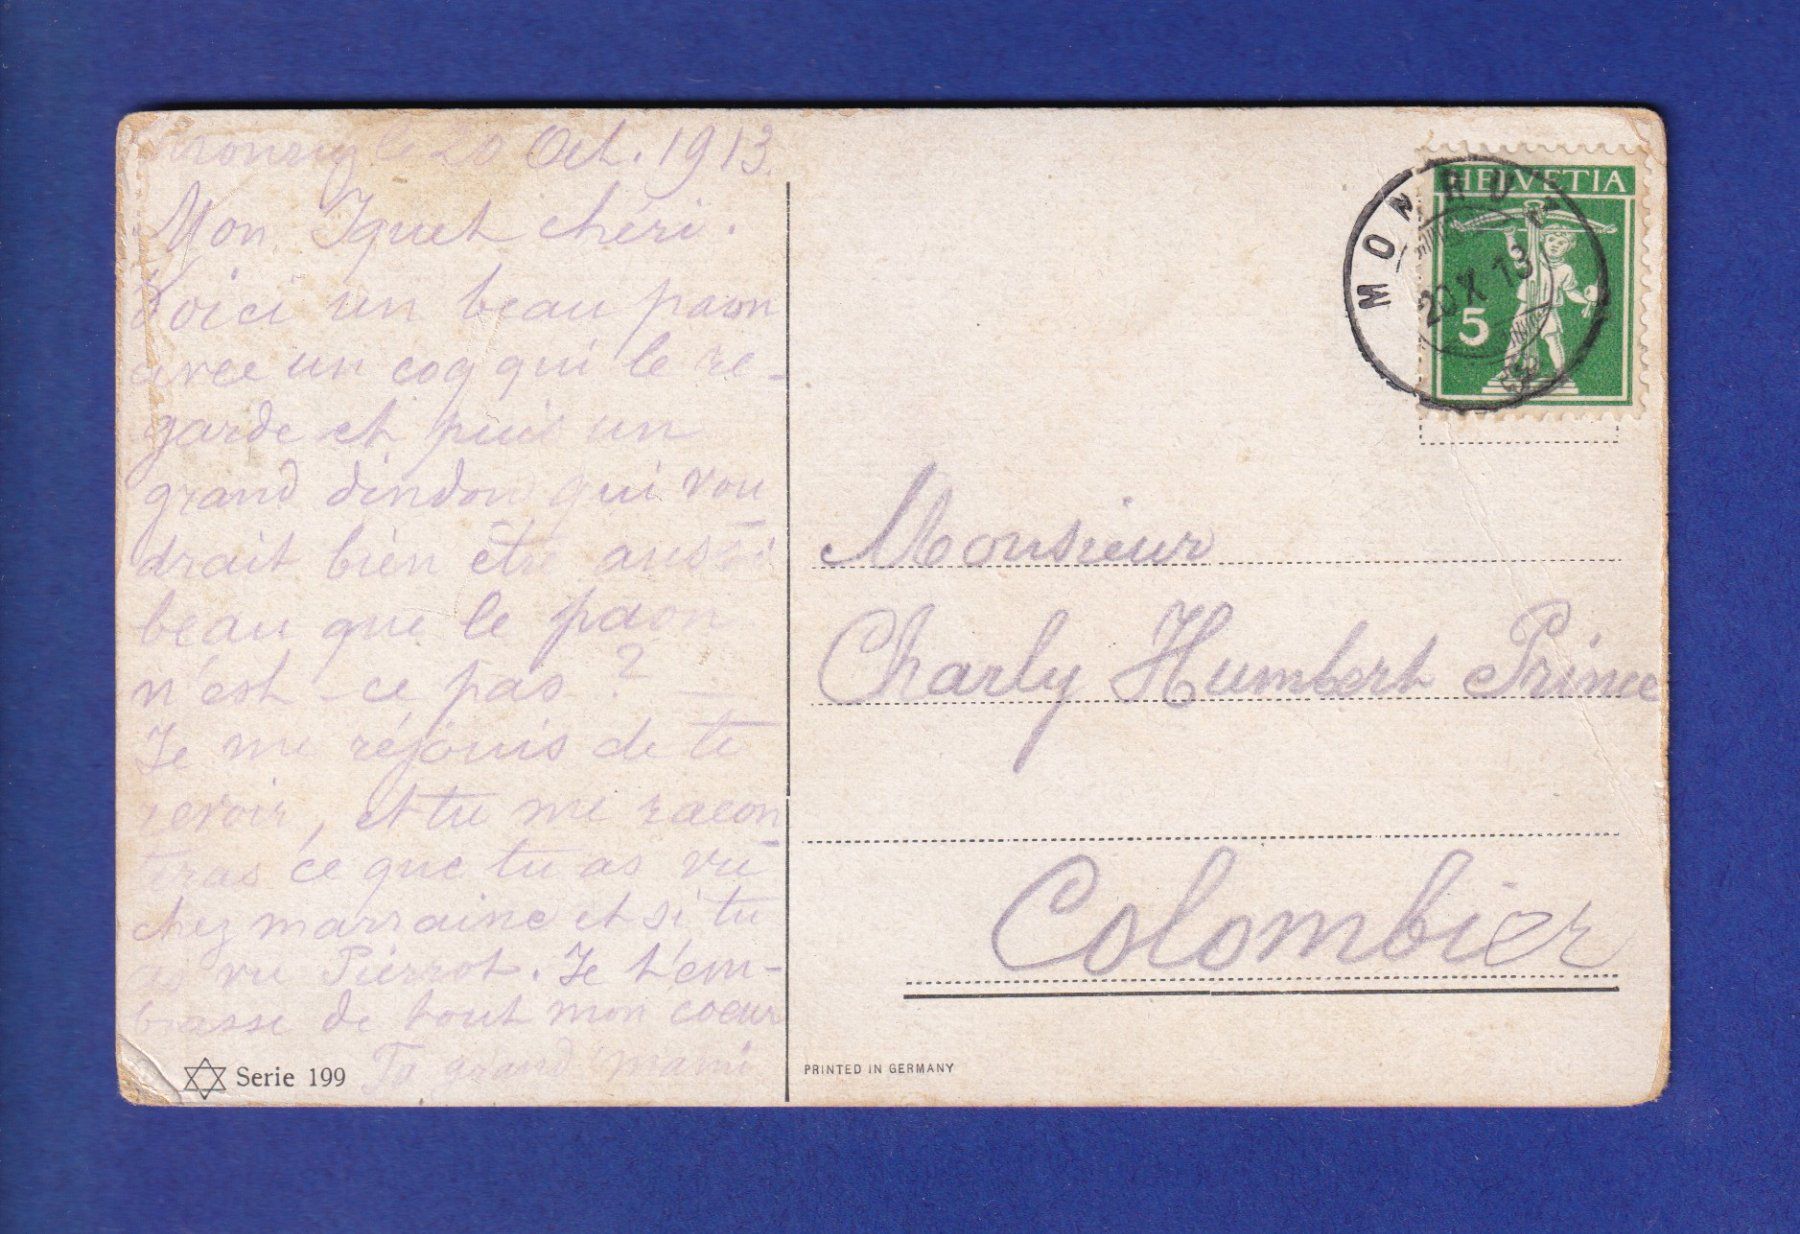 Monruz le 20 Oct. 1913.
Mon Iquet chéri.
Voici un beau paon
avec un coq qui le re-
garde et puis un
grand dindon qui vou
drait bien être aussi
beau que le paon
n'est-ce pas ? —
Je me réjouis de te
revoir, et tu me racon
teras ce que tu as vu
chez marraine et si tu
as vu Pierrot. Je t'em-
brasse de tout mon coeur
Ta grand'mami
Serie 199
HELVETIA
5
MONRUZ
20.X.13
Monsieur
Charly Humbert Prince
Colombier
PRINTED IN GERMANY